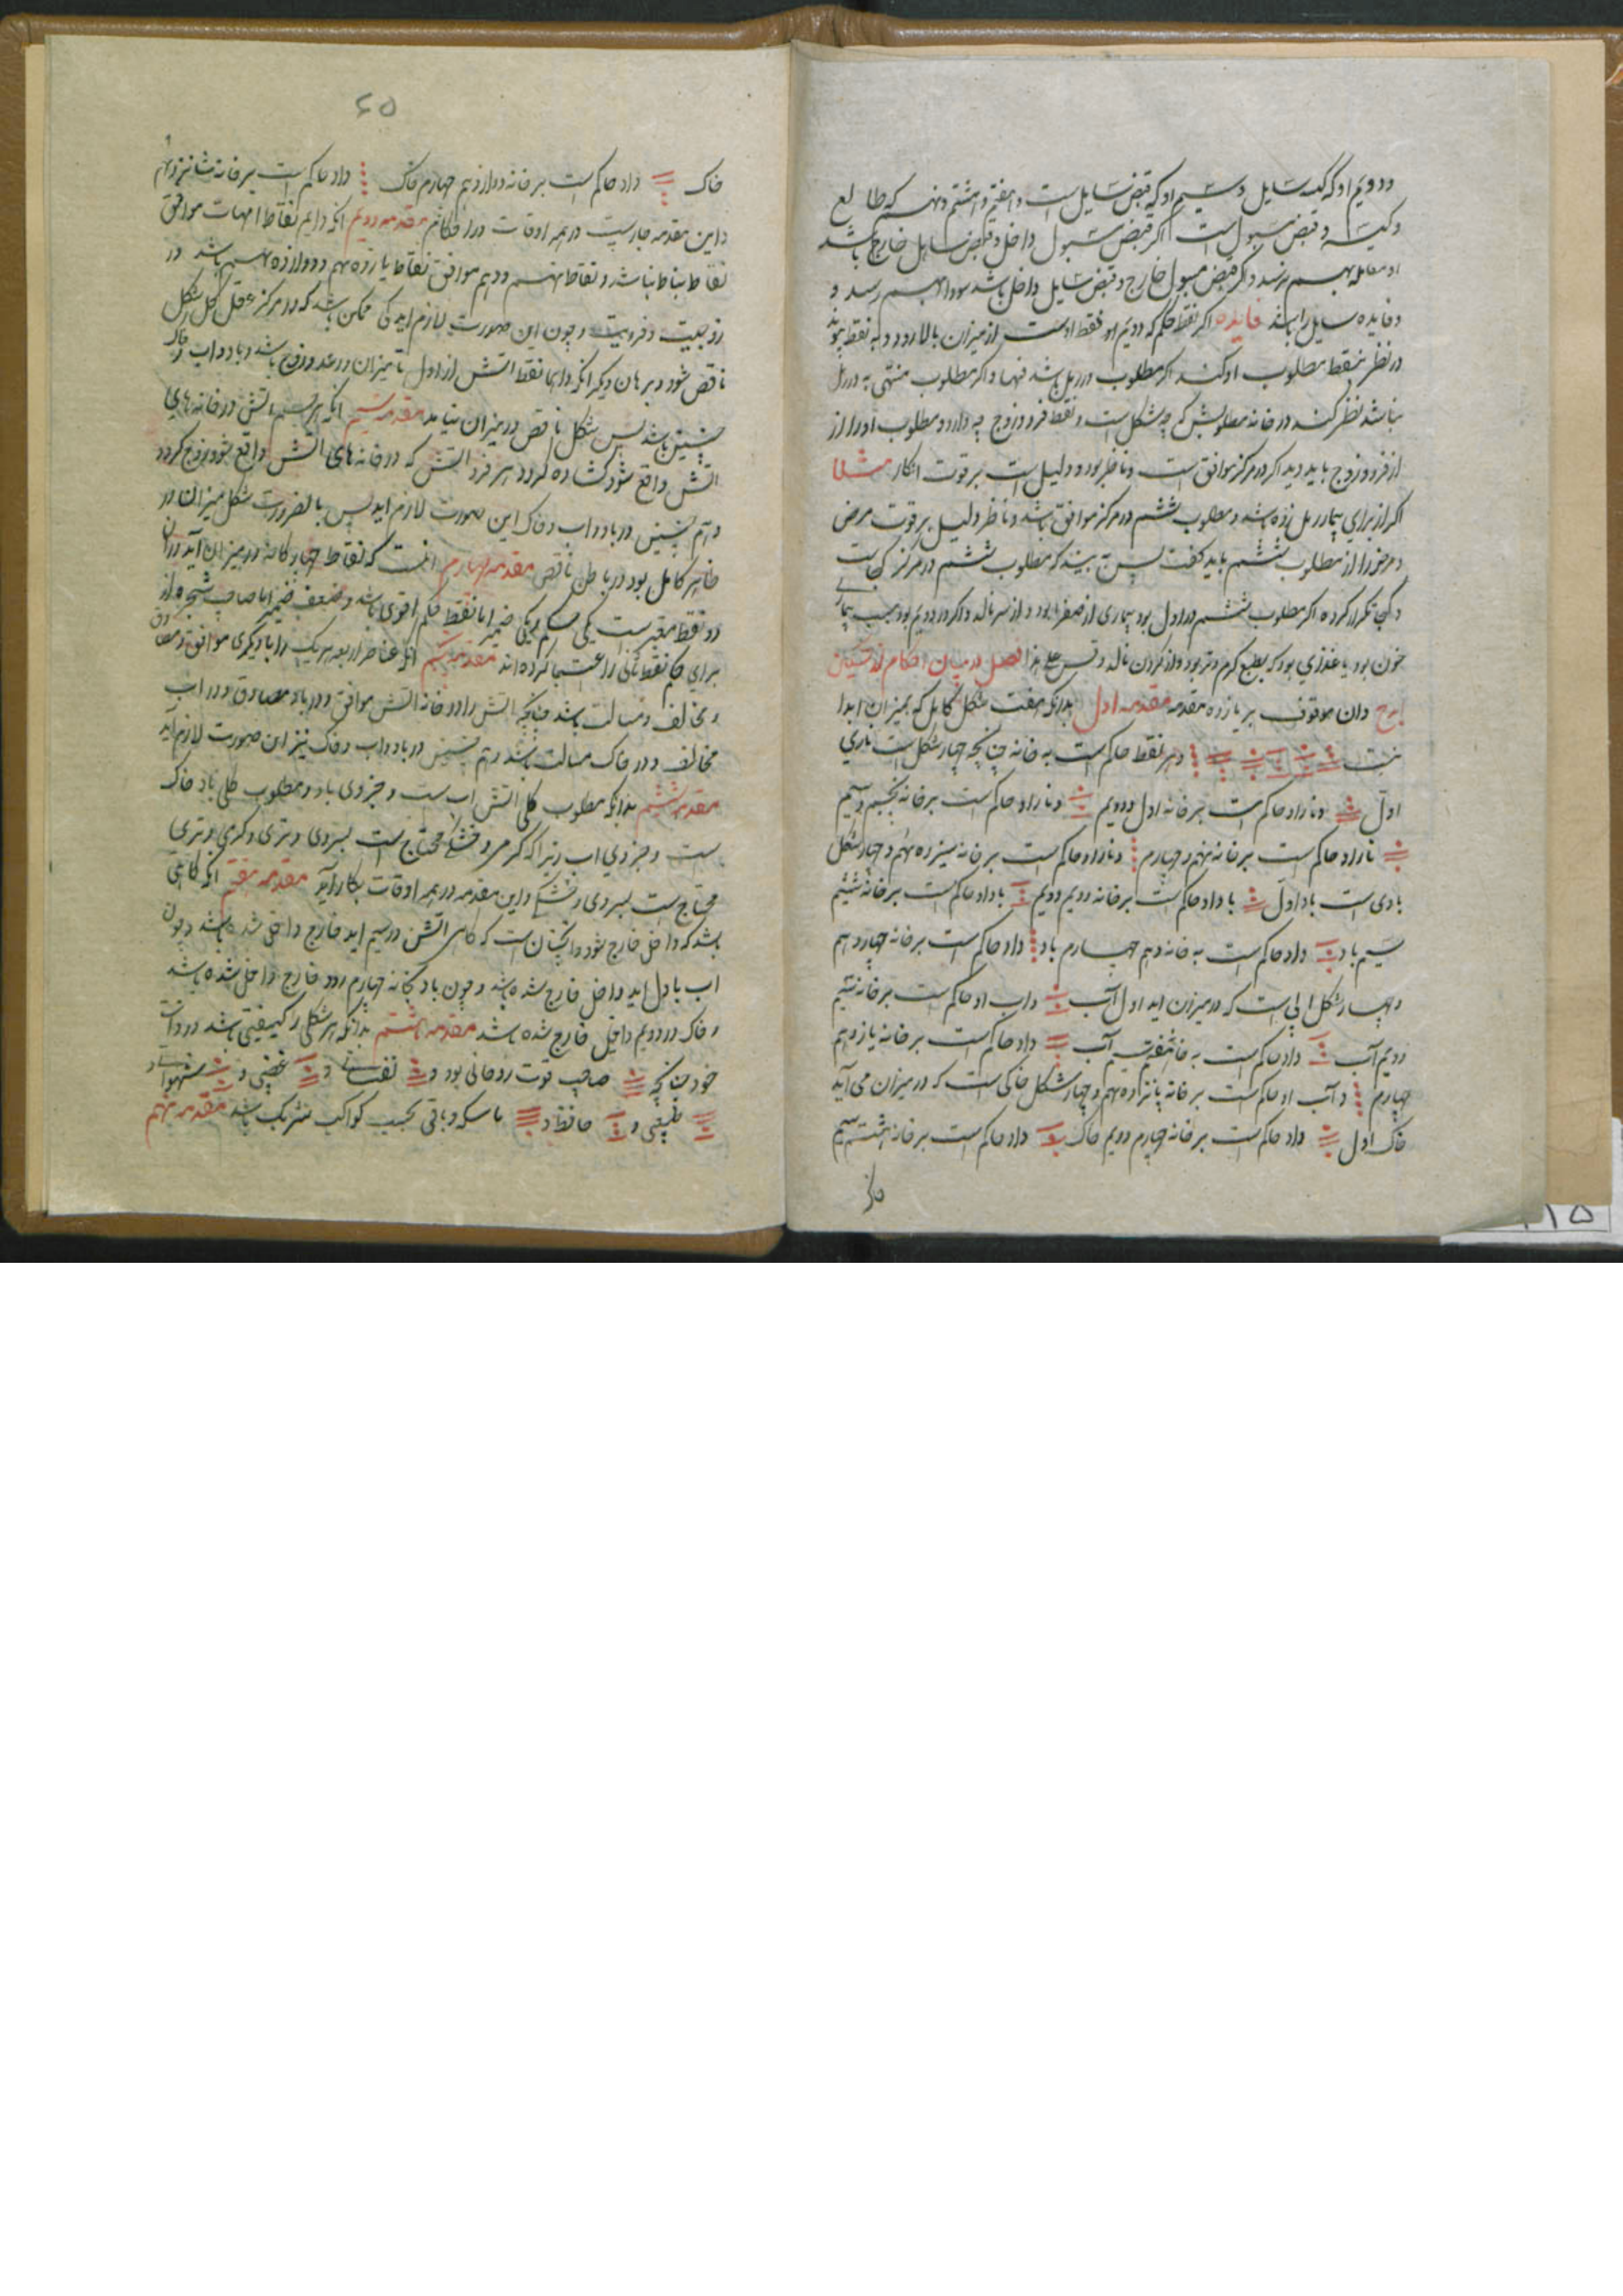 و دویم او که کیسه سایل و سیم او که قبض سایل است و هفتم و هشتم و نهم که طالع
و کیسه و قبض مسول است اگر قبض مسول داخل و قبض سایل خارج باشد
او معامله بهم نرسد و اگر قبض مسول خارج و قبض سایل داخل باشد سودا بهم رسد و
و فایده سایل را باشد فایده اگر نقطه حکم که دویم او نقطه اوست از میزان بالا رود و به نقطه
در نظر بنقطه مطلوب او کند اگر مطلوب در رمل باشد فبها و اگر مطلوب منتهی به در رمل
نباشد نظر کنند در خانه مطلوبش که چه شکل است و نقطه فرد و زوج چه دارد و مطلوب او را از
از فرد و زوج باید دید اگر در مرکز موافق است و ناظر بود و دلیل است بر قوت انکار مثلا
اگر از برای بیمار رمل زده باشد و مطلوب ششم در مرکز موافق باشد و ناظر دلیل بر قوت مرض
و مرض را از مطلوب ششم باید گفت پس ببیند که مطلوب ششم در مرکز کجاست
و کجا تکرار کرده اگر مطلوب ششم در اول بود بیماری از صفرا بود و از سر نالد و اگر در دویم بود سبب بیماری
خون بود یا غذای بود که بطبع گرم و تر بود و از گردن نالد و قس علی هذا فصل در بیان احکام از تسکین
ابدح و آن موقوف بر یازده مقدمه مقدمه اول بدانکه هفت شکل کامل که بمیزان ابدا
و هر نقطه حاکم است به خانه چنانچه چهار شکل است ناری
اول و نار او حاکم است بر خانه اول و دویم و نار او حاکم است بر خانه پنجم و سیم
نار او حاکم است بر خانه نهم و چهارم و نار او حاکم است بر خانه سیزدهم و چهار شکل
بادی است باد اول باد او حاکم است بر خانه دویم دویم باد او حاکم است بر خانه ششم
سیم باد و او حاکم است به خانه دهم چهارم باد و او حاکم است بر خانه چهاردهم
و چهار شکل ابی است که در میزان اید اول آب و اب او حاکم است بر خانه سیم
دویم آب و او حاکم است به خانه هفتم سیم آب و او حاکم است بر خانه یازدهم
چهارم و آب او حاکم است بر خانه پانزدهم و چهار شکل خاکی است که در میزان می آید
خاک اول و او حاکم است بر خانه چهارم دویم خاک و او حاکم است بر خانه هشتم سیم
۶۵
خاک و او حاکم است بر خانه دوازدهم چهارم خاک و او حاکم است بر خانه شانزدهم
و این مقدمه جاریست در همه اوقات در احکام مقدمه دویم آنکه دایم نقاط امهات موافق
نقاط بنات باشد و نقاط نهم و دهم موافق نقاط یازدهم و دوازدهم باشد در
زوجیت و فردیت و چون این صورت لازم اید کی ممکن باشد که در مرکز عقل کل شکل
ناقص شود و برهان دیگر آنکه دایما نقطه اتش از اول تا میزان در عدد زوج باشد و باد و اب و خاک
چنین باشد پس شکل ناقص در میزان نیاید مقدمه سیم آنکه هر قسم اتش در خانه های
اتش واقع شود کشاده گردد و هر فرد اتش که در خانه های اتش واقع شود زوج گردد
و هم چنین در باد و اب و خاک این صورت لازم اید پس بالضرورت شکل میزان در
ظاهر کامل بود در باطن ناقص مقدمه چهارم آنست که نقاط چهارگانه در میزان آید در آن
دو نقطه معتبر است یکی حکم و یکی ضمیر اما نقطه حکم اقوی باشد و ضعف ضمیر اما صاحب شجره از
برای حکم نقطه ثانی را اعتبار کرده اند مقدمه پنجم آنکه عناصر اربعه هر یک را با دیگری موافق و مصادق
و مخالف و مسالت باشد چنانچه اتش را در خانه اتش موافق و در باد مصادق و در اب
مخالف و در خاک مسالت باشد و هم چنین در باد و اب و خاک نیز این صورت لازم اید
مقدمه ششم بدانکه مطلوب کلی اتش اب ست و جزوی باد و مطلوب کلی باد خاک
ست و جزوی اب زیرا که گرمی و خشکی محتاج ست بسردی و تری و گرمی و تری
محتاج ست بسردی و خشکی و این مقدمه در همه اوقات بکار آید مقدمه هفتم آنکه گاهی
باشد که داخل خارج شود و انچنان است که گاهی اتش در سیم اید خارج داخل شده باشد و چون
اب باول اید داخل خارج شده باشد و چون باد بخانه چهارم رود خارج داخل شده باشد
و خاک در دویم داخل خارج شده باشد مقدمه هشتم بدانکه هر شکلی را کیفیتی باشد در ذات
خود چنانچه صاحب قوت روحانی بود و نفسانی و غضبی و شهوانی و
طبیعی و حافظه و ماسکه و باقی بحسب کواکب شریک باشد مقدمه نهم